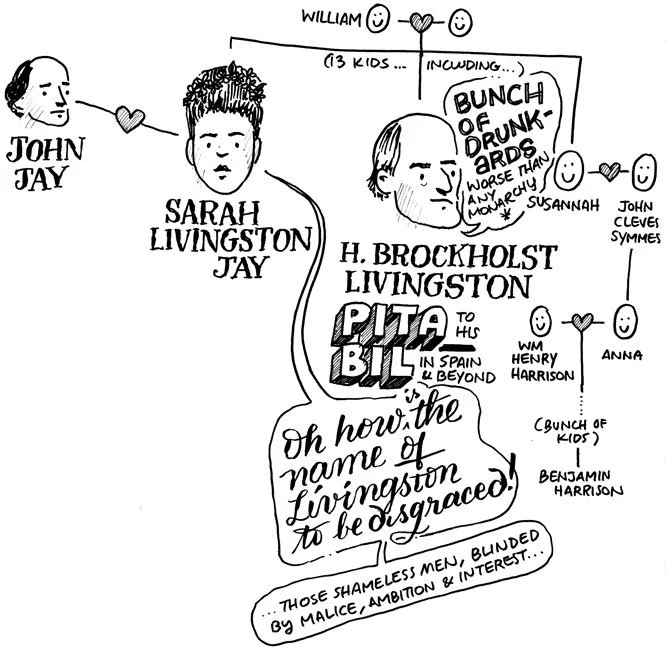 WILLIAM
(13 KIDS... INCLUDING...)
BUNCH
OF
DRUNK-
ARDS
WORSE THAN
ANY
MONARCHY
*
JOHN
JAY
SARAH
LIVINGSTON
JAY
H. BROCKHOLST
LIVINGSTON
SUSANNAH
JOHN
CLEVES
SYMMES
PITA
BIL
TO
HIS
IN SPAIN
& BEYOND
WM
HENRY
HARRISON
ANNA
(BUNCH OF
KIDS)
BENJAMIN
HARRISON
Oh how is the
name of
Livingston
to be disgraced!
...THOSE SHAMELESS MEN, BLINDED
BY MALICE, AMBITION & INTEREST...